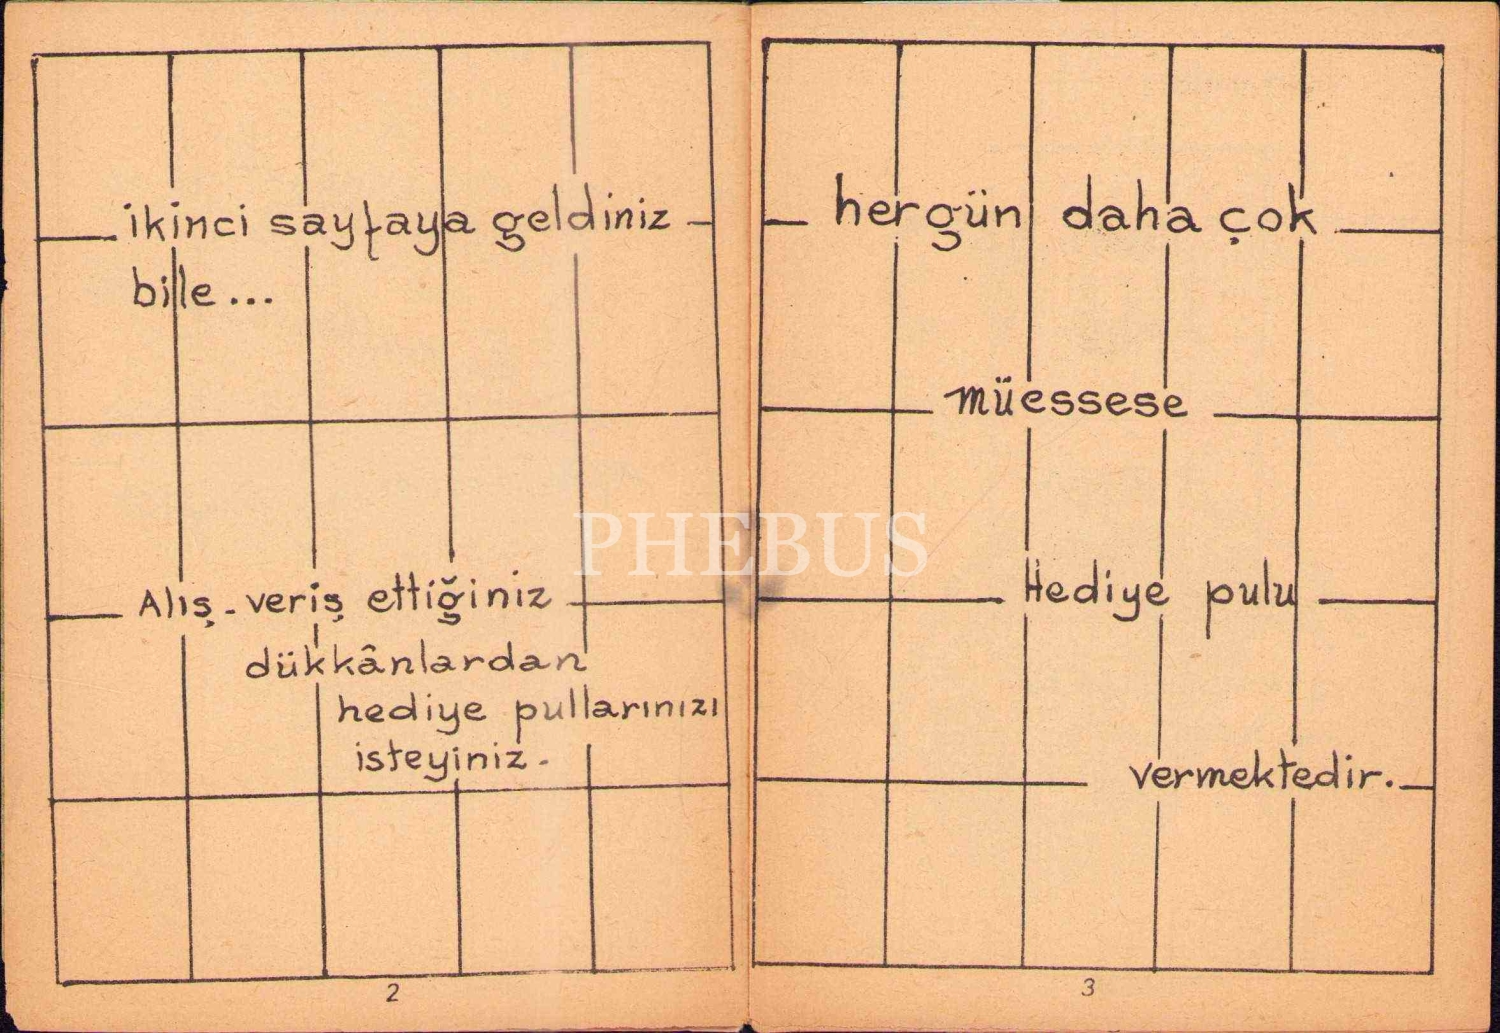 ikinci sayfaya geldiniz
bile...
Alış-veriş ettiğiniz
dükkânlardan
hediye pullarınızı
isteyiniz.
2
hergün daha çok
müessese
Hediye pulu
vermektedir.
3
PHEBUS